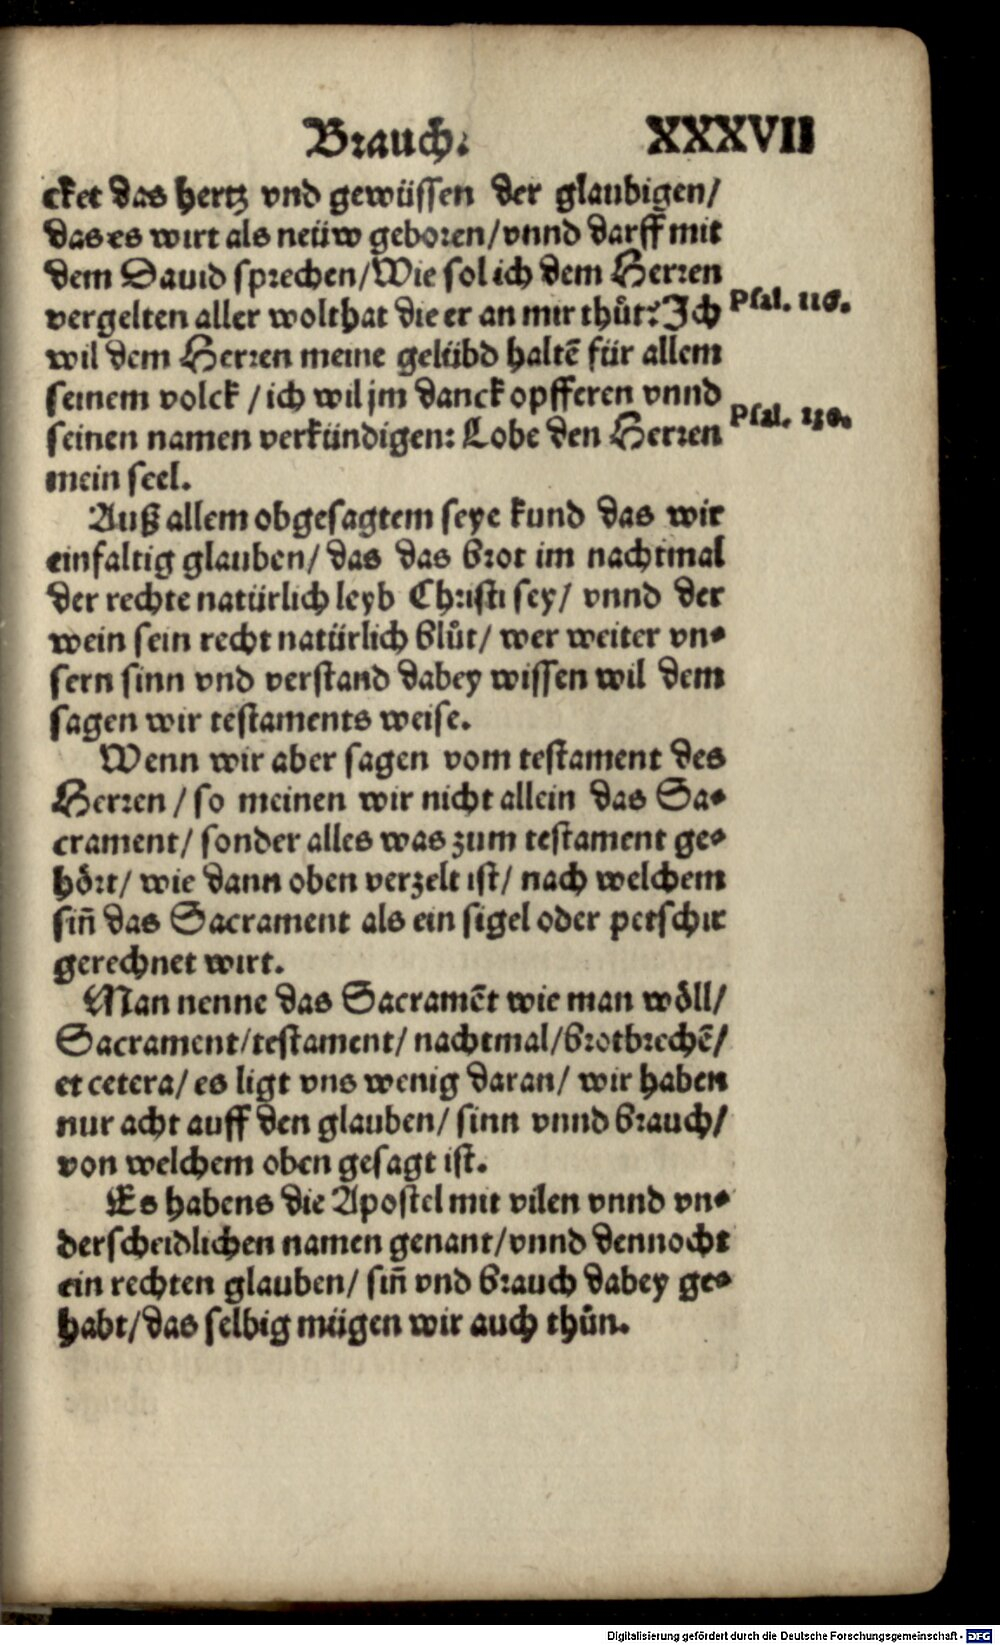 Brauch. XXXVII
cket das hertz vnd gewüssen der glaubigen/
das es wirt als neüw geboren/vnnd darff mit
dem Dauid sprechen/Wie sol ich dem Herren
vergelten aller wolthat die er an mir thůt? Ich
Psal. 116.
wil dem Herren meine gelübd haltē für allem
seinem volck / ich wil jm danck opfferen vnnd
seinen namen verkündigen: Lobe den Herren
Psal.
mein seel.
Auß allem obgesagtem seye kund das wir
einfaltig glauben/ das das brot im nachtmal
der rechte natürlich leyb Christi sey/ vnnd der
wein sein recht natürlich blůt/ wer weiter vn-
sern sinn vnd verstand dabey wissen wil dem
sagen wir testaments weise.
Wenn wir aber sagen vom testament des
Herren / so meinen wir nicht allein das Sa-
crament/ sonder alles was zum testament ge-
hört/ wie dann oben verzelt ist/ nach welchem
siñ das Sacrament als ein sigel oder petschir
gerechnet wirt.
Man nenne das Sacramēt wie man wöll/
Sacrament/testament/ nachtmal/brotbrechē/
et cetera/ es ligt vns wenig daran/ wir haben
nur acht auff den glauben/ sinn vnnd brauch/
von welchem oben gesagt ist.
Es habens die Apostel mit vilen vnnd vn-
derscheidlichen namen genant/vnnd dennocht
ein rechten glauben/ siñ vnd brauch dabey ge-
habt/das selbig mügen wir auch thůn.
Digitalisierung gefördert durch die Deutsche Forschungsgemeinschaft - DFG